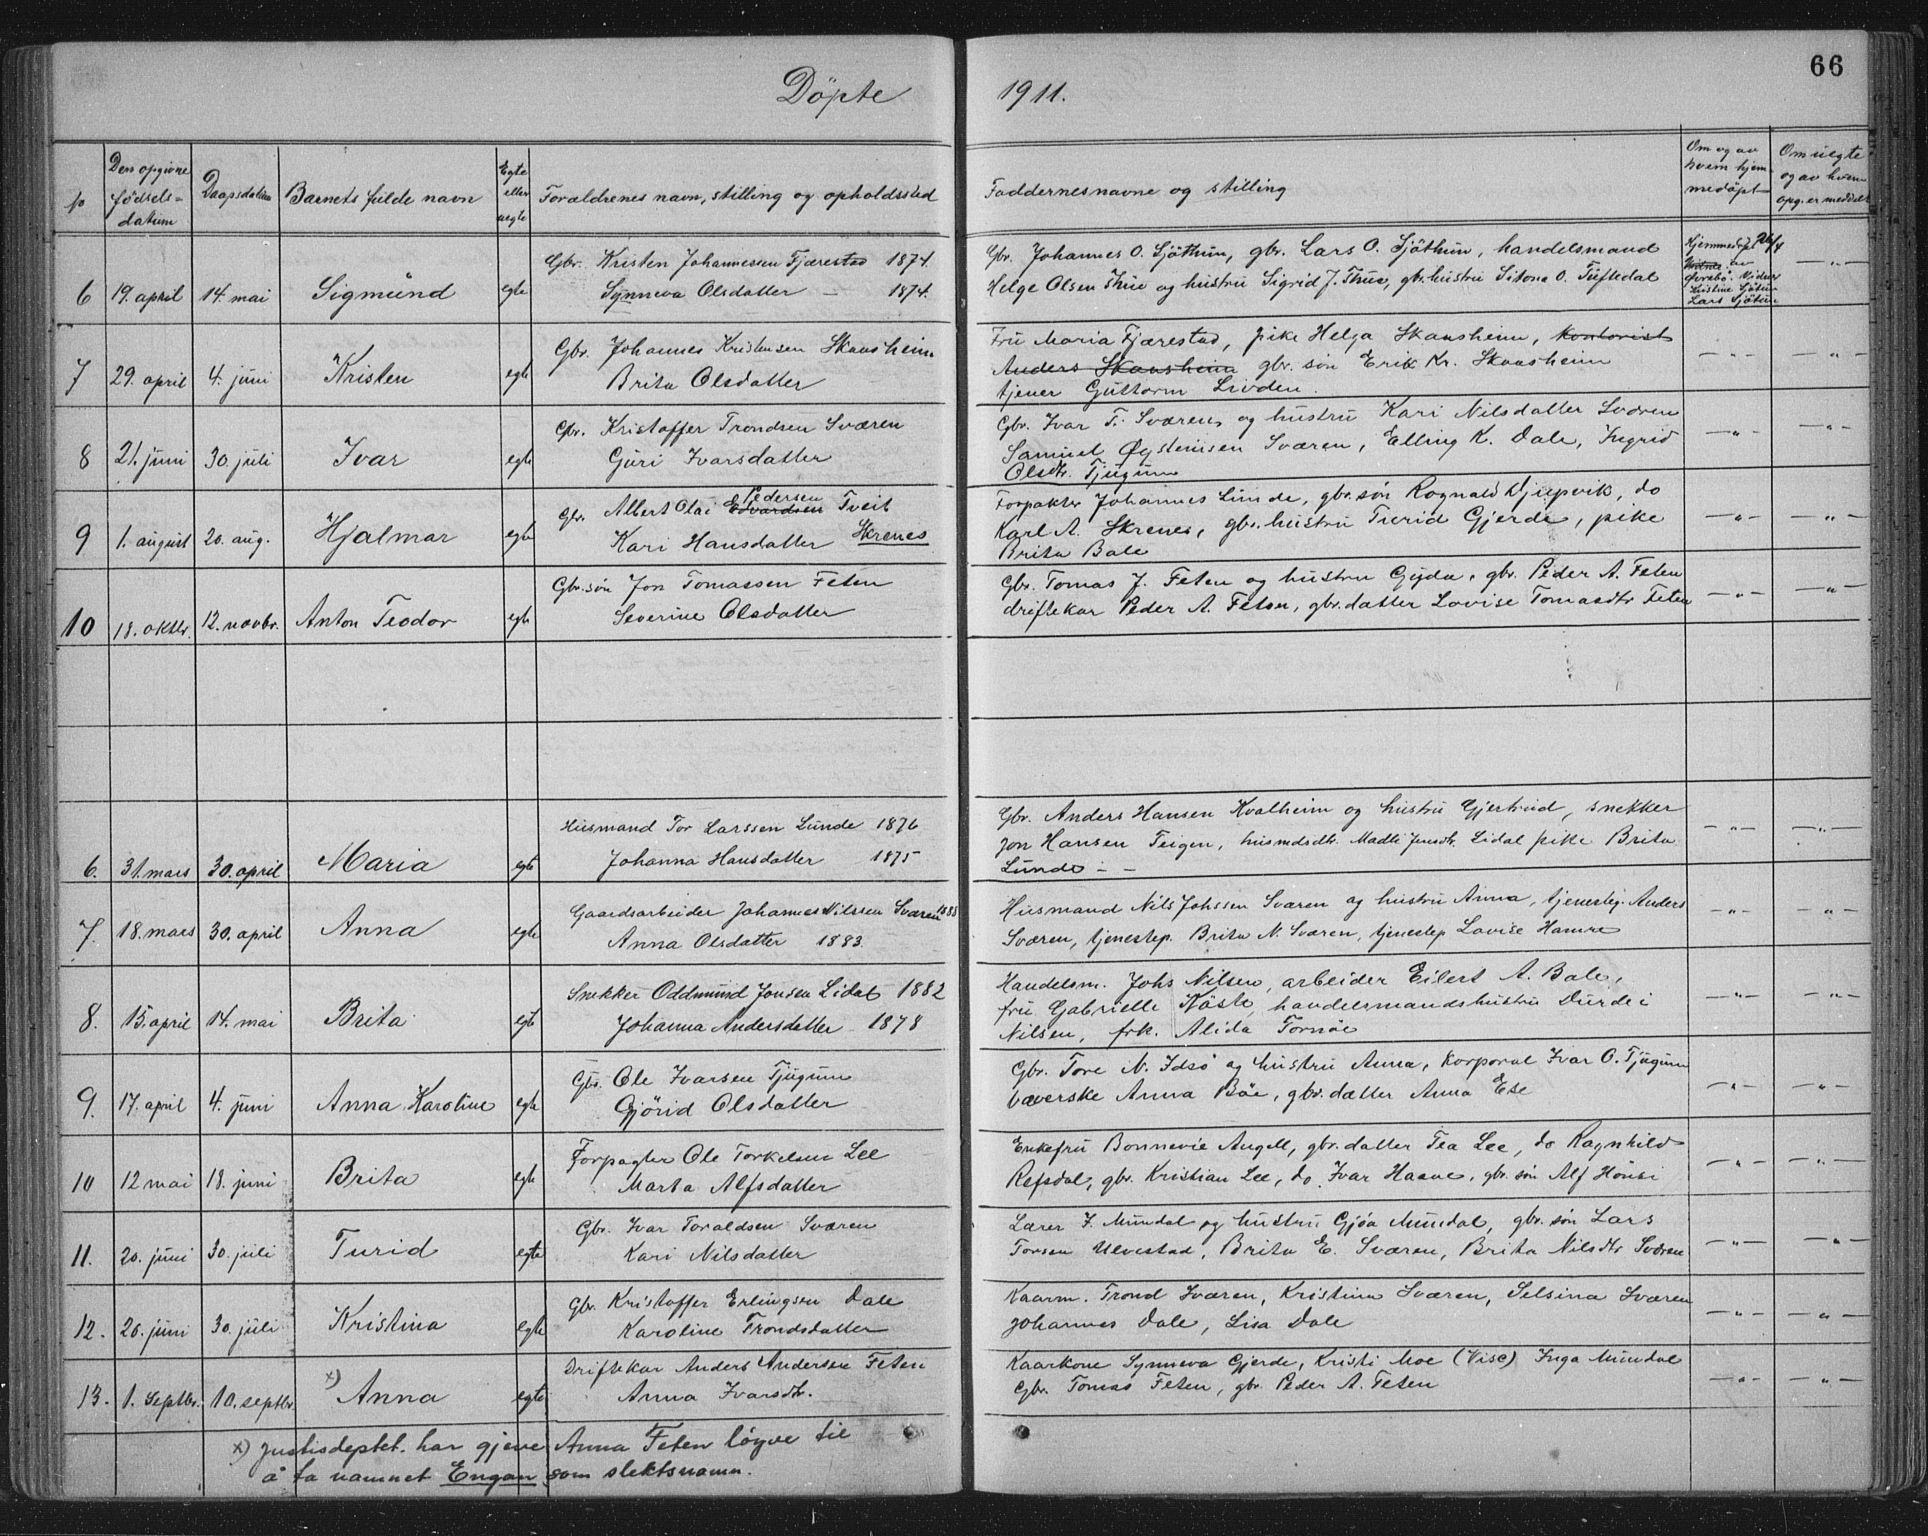 66
Döpte 1911.
№
Den opgivne fødselsdatum
Daapsdatum
Barnets fulde navn
Egte eller uegte
Forældrenes navn, stilling og opholdssted
Faddernes navne og stilling
Om og av hvem hjemmedøpt
Om uegte og av hvem opg. er meddelt
6 19. april 14. mai Sigmund egte
Gbr. Kristen Johannessen Fjærestad 1874.
Synneva Olsdatter — 1874.
Gbr. Johannes O. Sjöthun, gbr. Lars O. Sjöthun, handelsmand
Helge Olsen Thue og hustru Sigrid J. Thue, gbr. hustru O. Tuftedal
Hjemmedøpt av
Kristine Sjötun
Lars Sjötun
— " —
7 29. april 4. juni Kristen egte
Gbr. Johannes Kristensen Skaasheim
Brita Olsdatter
Fru Maria Fjærestad, pike Helga Skaasheim, kontorist
Anders Skaasheim gbr. søn Erik Kr. Skaasheim
tjener Guttorm Livden.
— " — — " —
8 21. juni 30. juli Ivar egte
Gbr. Kristoffer Trondsen Sværen
Guri Ivarsdatter
Gbr. Ivar T. Sværen, og hustru Kari Nilsdatter Sværen
Samuel Øysteinsen Sværen, Elling K. Dale, Ingrid
Olsdtr. Tjugum
— " — — " —
9 1. august 20. aug. Hjalmar egte
Gbr. Albert Olai Edvardsen Pedersen Tveit
Kari Hansdatter Skrenes
Forpakter Johannes Linde, gbr. søn Rognald Djupvik, do
Karl A. Skrenes, gbr. hustru Turid Gjerde, pike
Brita Bale
— " — — " —
10 18. oktbr. 12. novbr. Anton Teodor egte
Gbr. søn Jon Tomassen Feten
Severine Olsdatter
Gbr. Tomas J. Feten og hustru Gyda, gbr. Peder A. Feten
driftekar Peder A. Feten, gbr. datter Lovise Tomasdtr Feten
— " — — " —
6. 31. mars 30. april Maria egte
Husmand Tor Larssen Lunde 1876
Johanna Hansdatter 1875
Gbr. Anders Hansen Kvalheim og hustru Gjertrud, snekker
Jon Hansen Teigen, husmdsdtr. Madli Jensdtr. Lidal pike Brita
Lunde - -
— " — — " —
7. 18. mars 30. april Anna egte
Gaardsarbeider Johannes Nilssen Sværen 1888
Anna Olsdatter 1883.
Husmand Nils Johssen Sværen og hustru Anna, tjenesteg. Anders
Sværen, tjenestep. Brita N. Sværen, tjenestep Lovise Hamre
— " — — " —
8. 15. april 14. mai Brita egte
Snekker Oddmund Jonsen Lidal 1882
Johanna Andersdatter 1878
Handelsm. Johs Nilsen, arbeider Eilert A. Bale,
fru Gabrielle Kåsle, handelsmandshustru Durdei
Nilsen, frk. Alida Tornöe
— " — — " —
9. 17. april 4. juni Anna Karoline egte
Gbr. Ole Ivarsen Tjugum
Gjörid Olsdatter
Gbr. Tore N. Idsø og hustru Anna, korporal Ivar O. Tjugum
væverske Anna Böe, gbr. datter Anna Ese
— " — — " —
10 12 mai 18. juni Brita egte
Forpagter Ole Torkelsen Lee
Marta Alfsdatter
Enkefru Bonnevie Angell, gbr. datter Tea Lee, do Ragnhild
Refsdal, gbr. Kristian Lee, do. Ivar Haave, gbr. søn Alf Hönsi
— " — — " —
11. 20. juni 30. juli Turid egte
Gbr. Ivar Toraldsen Sværen
Kari Nilsdatter
Lærer J. Mundal og hustru Gjøa Mundal, gbr. søn Lars
Torsen Ulvestad, Brita E. Sværen, Brita Nilsdtr Sværen
— " — — " —
12. 20. juni 30. juli Kristina egte
Gbr. Kristoffer Erlingsen Dale
Karoline Trondsdatter
Kaarm. Trond Sværen, Kristina Sværen, Selsina Sværen
Johannes Dale, Lisa Dale
— " — — " —
13. 1. Septbr. 10. septbr. x) Anna egte
Driftekar Anders Andersen Feten
Anna Ivarsdtr.
Kaarkone Synneva Gjerde, Kristi Moe (Vise) Inga Mundal
Gbr. Tomas Feten, gbr. Peder A. Feten
— " — — " —
x) Justisdeptet. har gjeve Anna Feten løyve til
å ta namnet Engan som slektsnamn.